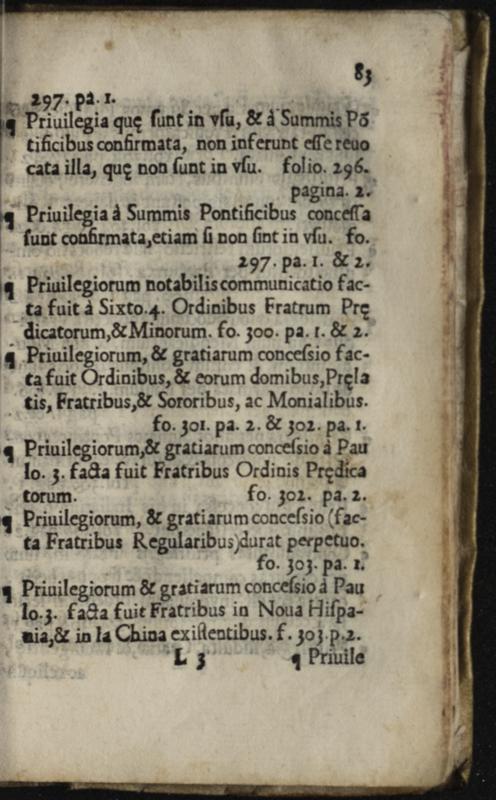 83
297. pa. 1.
¶ Priuilegia quę ſunt in vſu, & à Summis Põ
tificibus confirmata, non inferunt eſſe reuo
cata illa, quę non ſunt in vſu. folio. 296.
pagina. 2.
¶ Priuilegia à Summis Pontificibus conceſſa
ſunt confirmata,etiam ſi non ſint in vſu. fo.
297. pa. 1. & 2.
¶ Priuilegiorum notabilis communicatio fac-
ta fuit à Sixto.4. Ordinibus Fratrum Prę
dicatorum,&Minorum. fo. 300. pa. 1. & 2.
¶ Priuilegiorum, & gratiarum conceſsio fac-
ta fuit Ordinibus, & eorum domibus,Pręla
tis, Fratribus,& Sororibus, ac Monialibus.
fo. 301. pa. 2. & 302. pa. 1.
¶ Priuilegiorum,& gratiarum conceſsio à Pau
lo. 3. facta fuit Fratribus Ordinis Prędica
torum. fo. 302. pa. 2.
¶ Priuilegiorum, & gratiarum conceſsio (fac-
ta Fratribus Regularibus)durat perpetuo.
fo. 303. pa. 1.
¶ Priuilegiorum & gratiarum conceſsio à Pau
lo.3. facta fuit Fratribus in Noua Hiſpa-
nia,& in la China exiſtentibus. f. 303.p.2.
L 3 ¶ Priuile